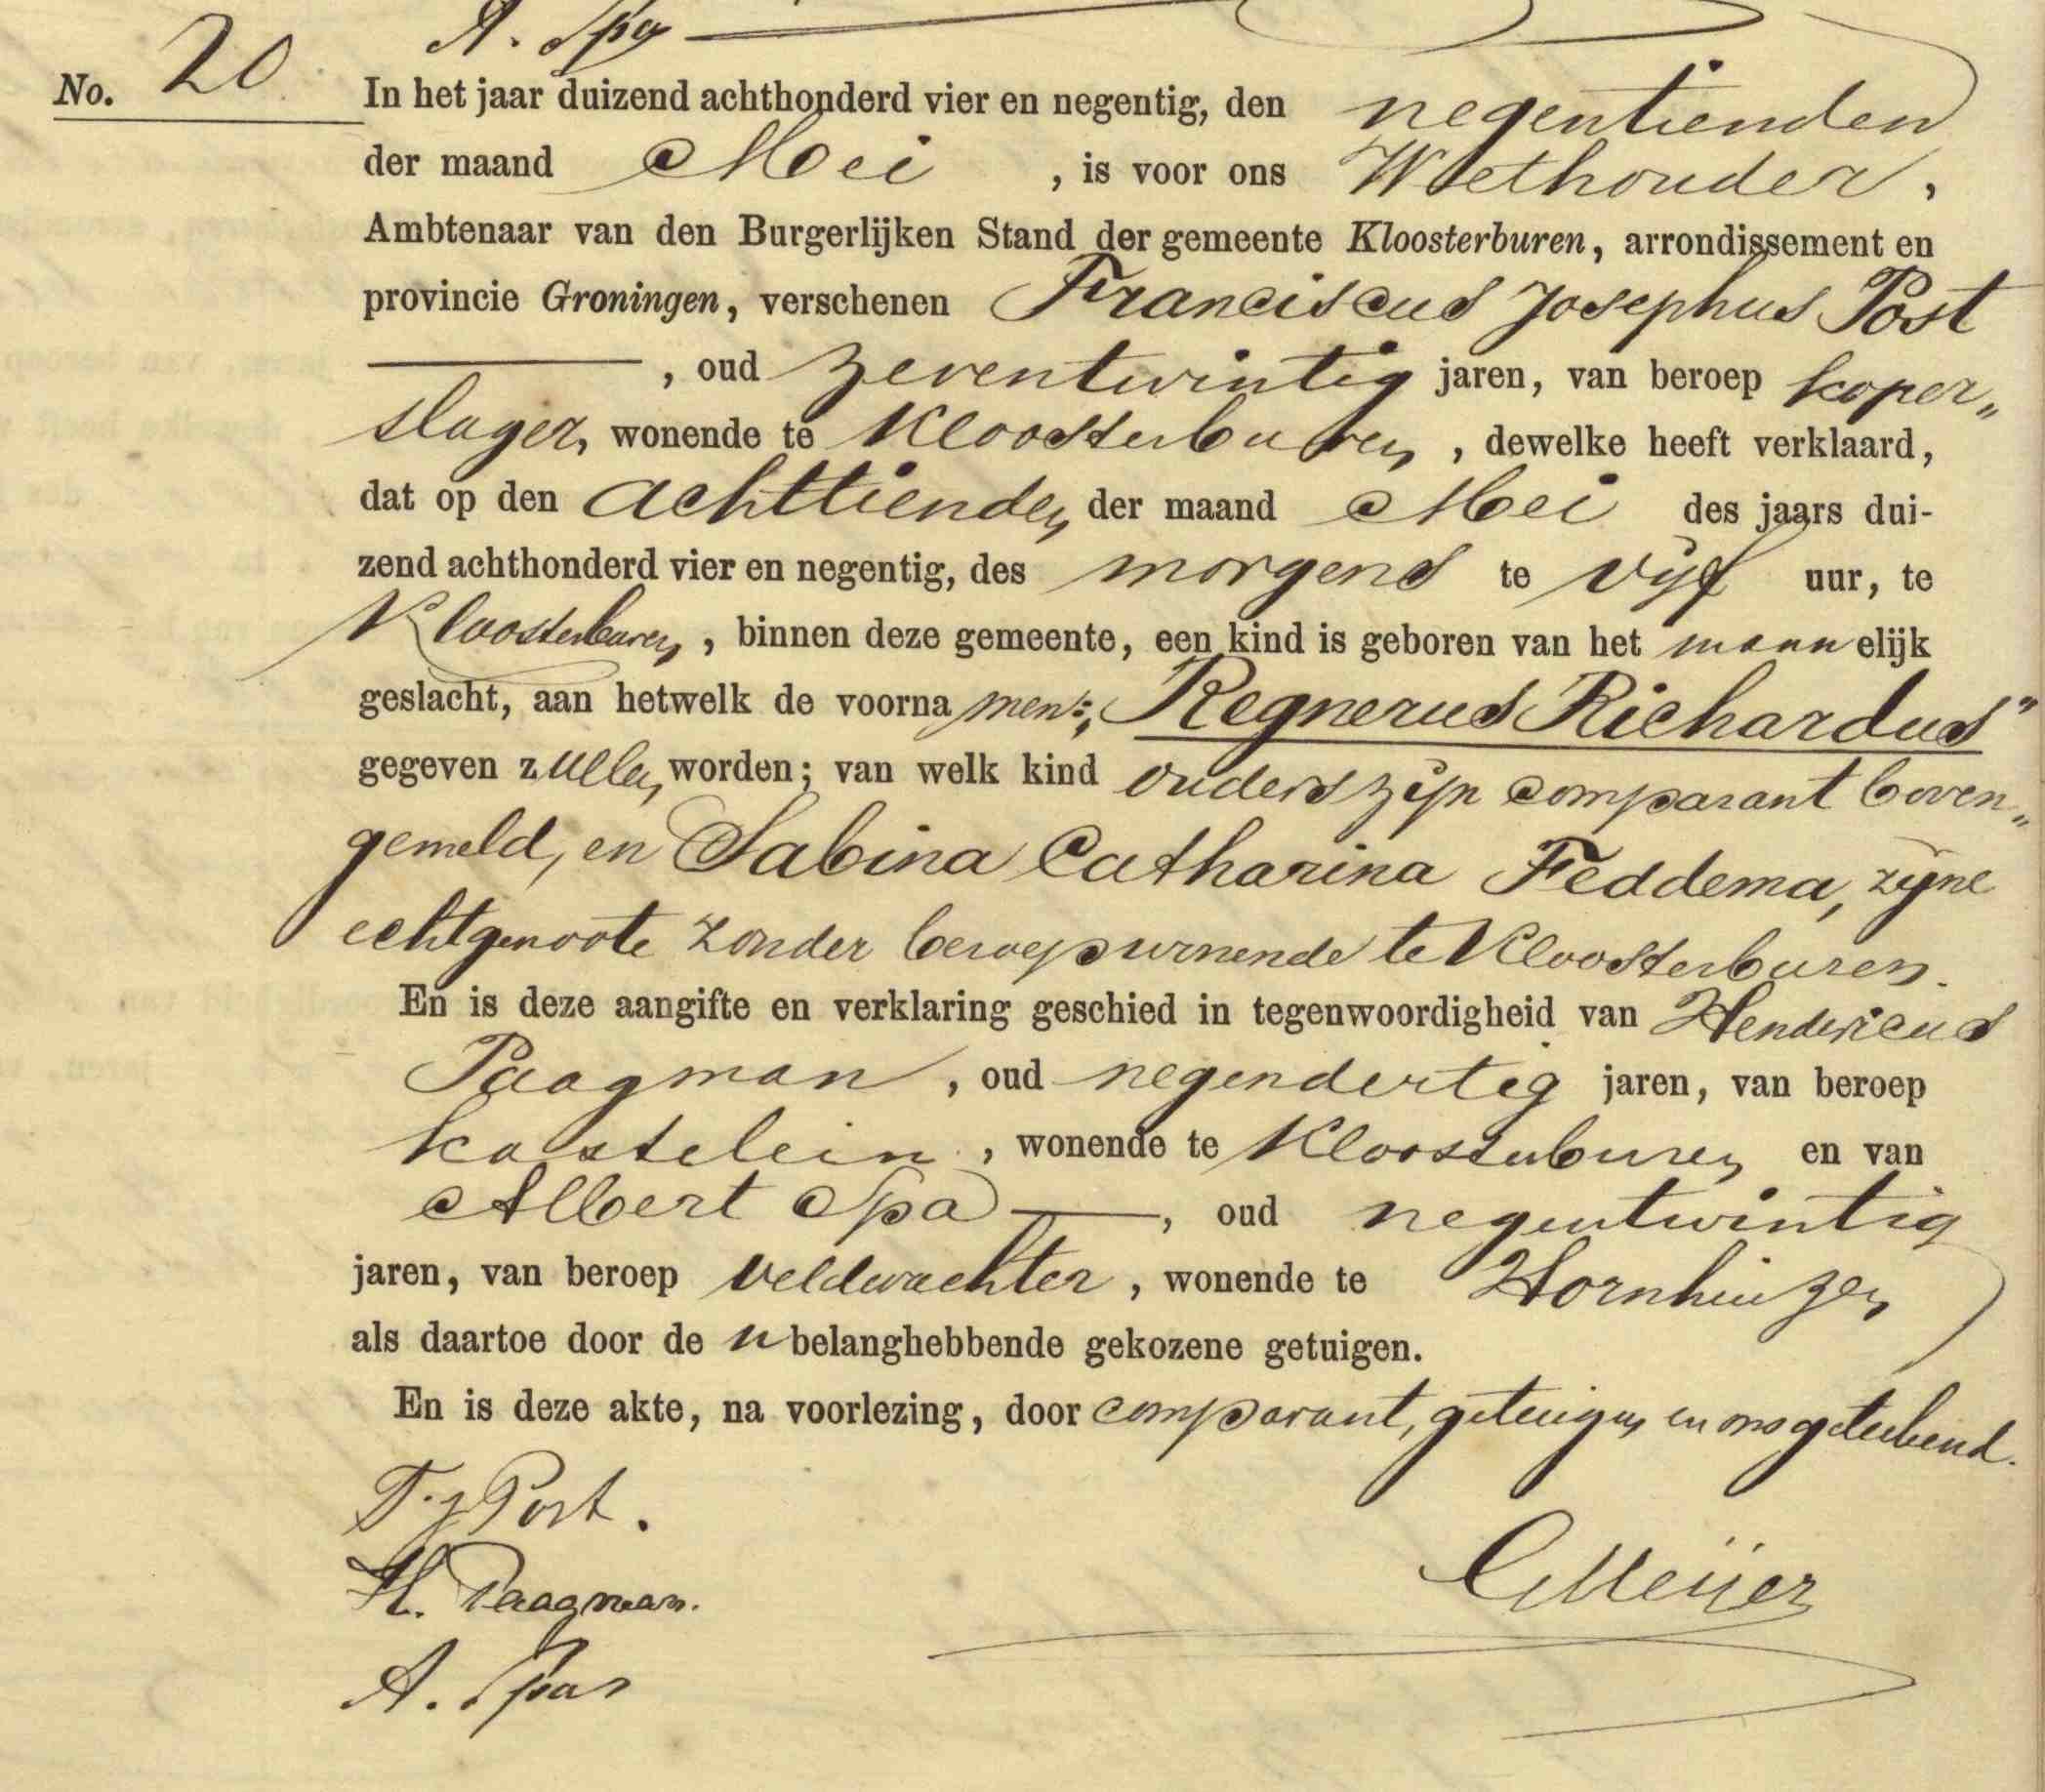 A. Spa
No. 20
In het jaar duizend achthonderd vier en negentig, den negentienden
der maand Mei , is voor ons Wethouder,
Ambtenaar van den Burgerlijken Stand der gemeente Kloosterburen, arrondissement en
provincie Groningen, verschenen Franciscus Josephus Post
, oud zeventwintig jaren, van beroep koper„
slager, wonende te Kloosterburen, dewelke heeft verklaard,
dat op den achttienden der maand Mei des jaars dui-
zend achthonderd vier en negentig, des morgens te vijf uur, te
Kloosterburen, binnen deze gemeente, een kind is geboren van het mannelijk
geslacht, aan hetwelk de voornamen: „Regnerus Richardus”
gegeven zullen worden; van welk kind ouders zijn comparant boven„
gemeld, en Sabina Catharina Feddema, zijne
echtgenoote zonder beroep wonende te Kloosterburen.
En is deze aangifte en verklaring geschied in tegenwoordigheid van Hendericus
Paagman, oud negendertig jaren, van beroep
kastelein, wonende te Kloosterburen en van
Albert Spa, oud negentwintig
jaren, van beroep veldwachter, wonende te Hornhuizen
als daartoe door de n belanghebbende gekozene getuigen.
En is deze akte, na voorlezing, door comparant, getuigen en ons geteekend.
F. J Post.
H. Paagman.
A. Spa
G Meijer